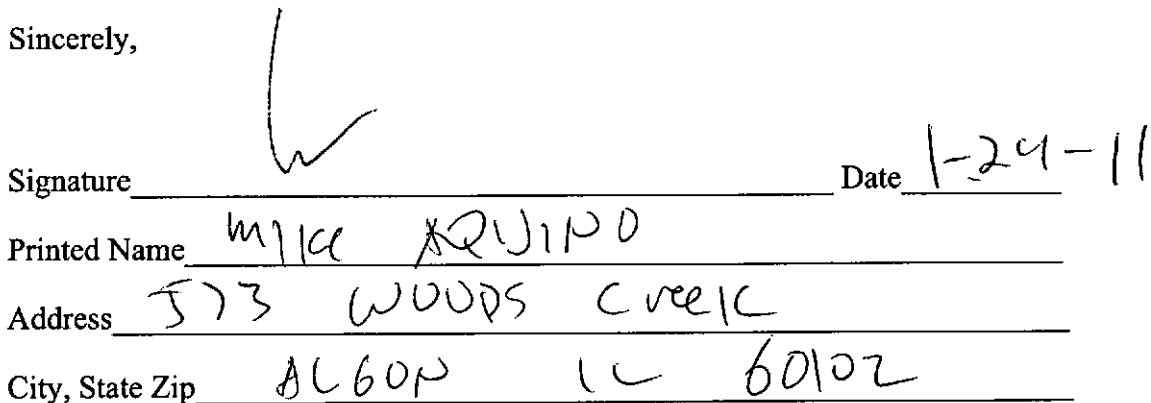 Sincerely,
Signature Date 1-24-11
Printed Name MIKE AQUINO
Address 573 WOODS Creek
City, State Zip ALGON IL 60102